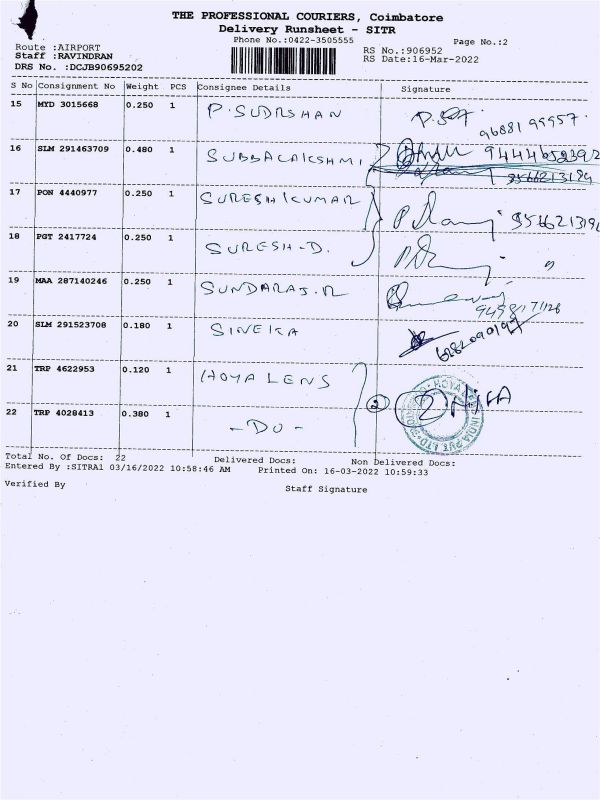 THE PROFESSIONAL COURIERS, Coimbatore
Delivery Runsheet - SITR
Phone No.:0422-3505555
Page No.:2
Route :AIRPORT
RS No.:906952
Staff :RAVINDRAN
RS Date:16-Mar-2022
DRS No. :DCJB90695202
S No Consignment No Weight PCS Consignee Details Signature
15 MYD 3015668 0.250 1 P. SUDRSHAN
96881 99957.
16 SLM 291463709 0.480 1 SUBBALAKSHMI 9444652392
9566213194
17 PON 4440977 0.250 1 SURESH KUMAR
18 PGT 2417724 0.250 1 SURESH.D. "
19 MAA 287140246 0.250 1 SUNDARAJ.R
20 SLM 291523708 0.180 1 SINEKA
6282090197
21 TRP 4622953 0.120 1 HOYA LENS
22 TRP 4028413 0.380 1 - DO -
2
HOYA LENS INDIA PVT LTD
Total No. Of Docs: 22 Delivered Docs: Non Delivered Docs:
Entered By :SITRA1 03/16/2022 10:58:46 AM Printed On: 16-03-2022 10:59:33
Verified By
Staff Signature